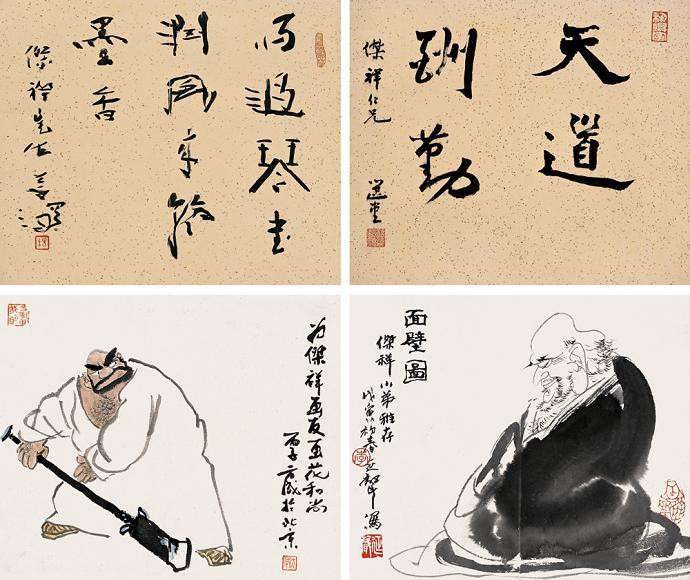 雨過琴書
潤風來翰
墨香
傑祥先生
天道
酬勤
傑祥仁兄
選堂
为傑祥画友画花和尚
丙子方成於北京
面壁圖
傑祥小弟雅存
戊寅初春延聲寫